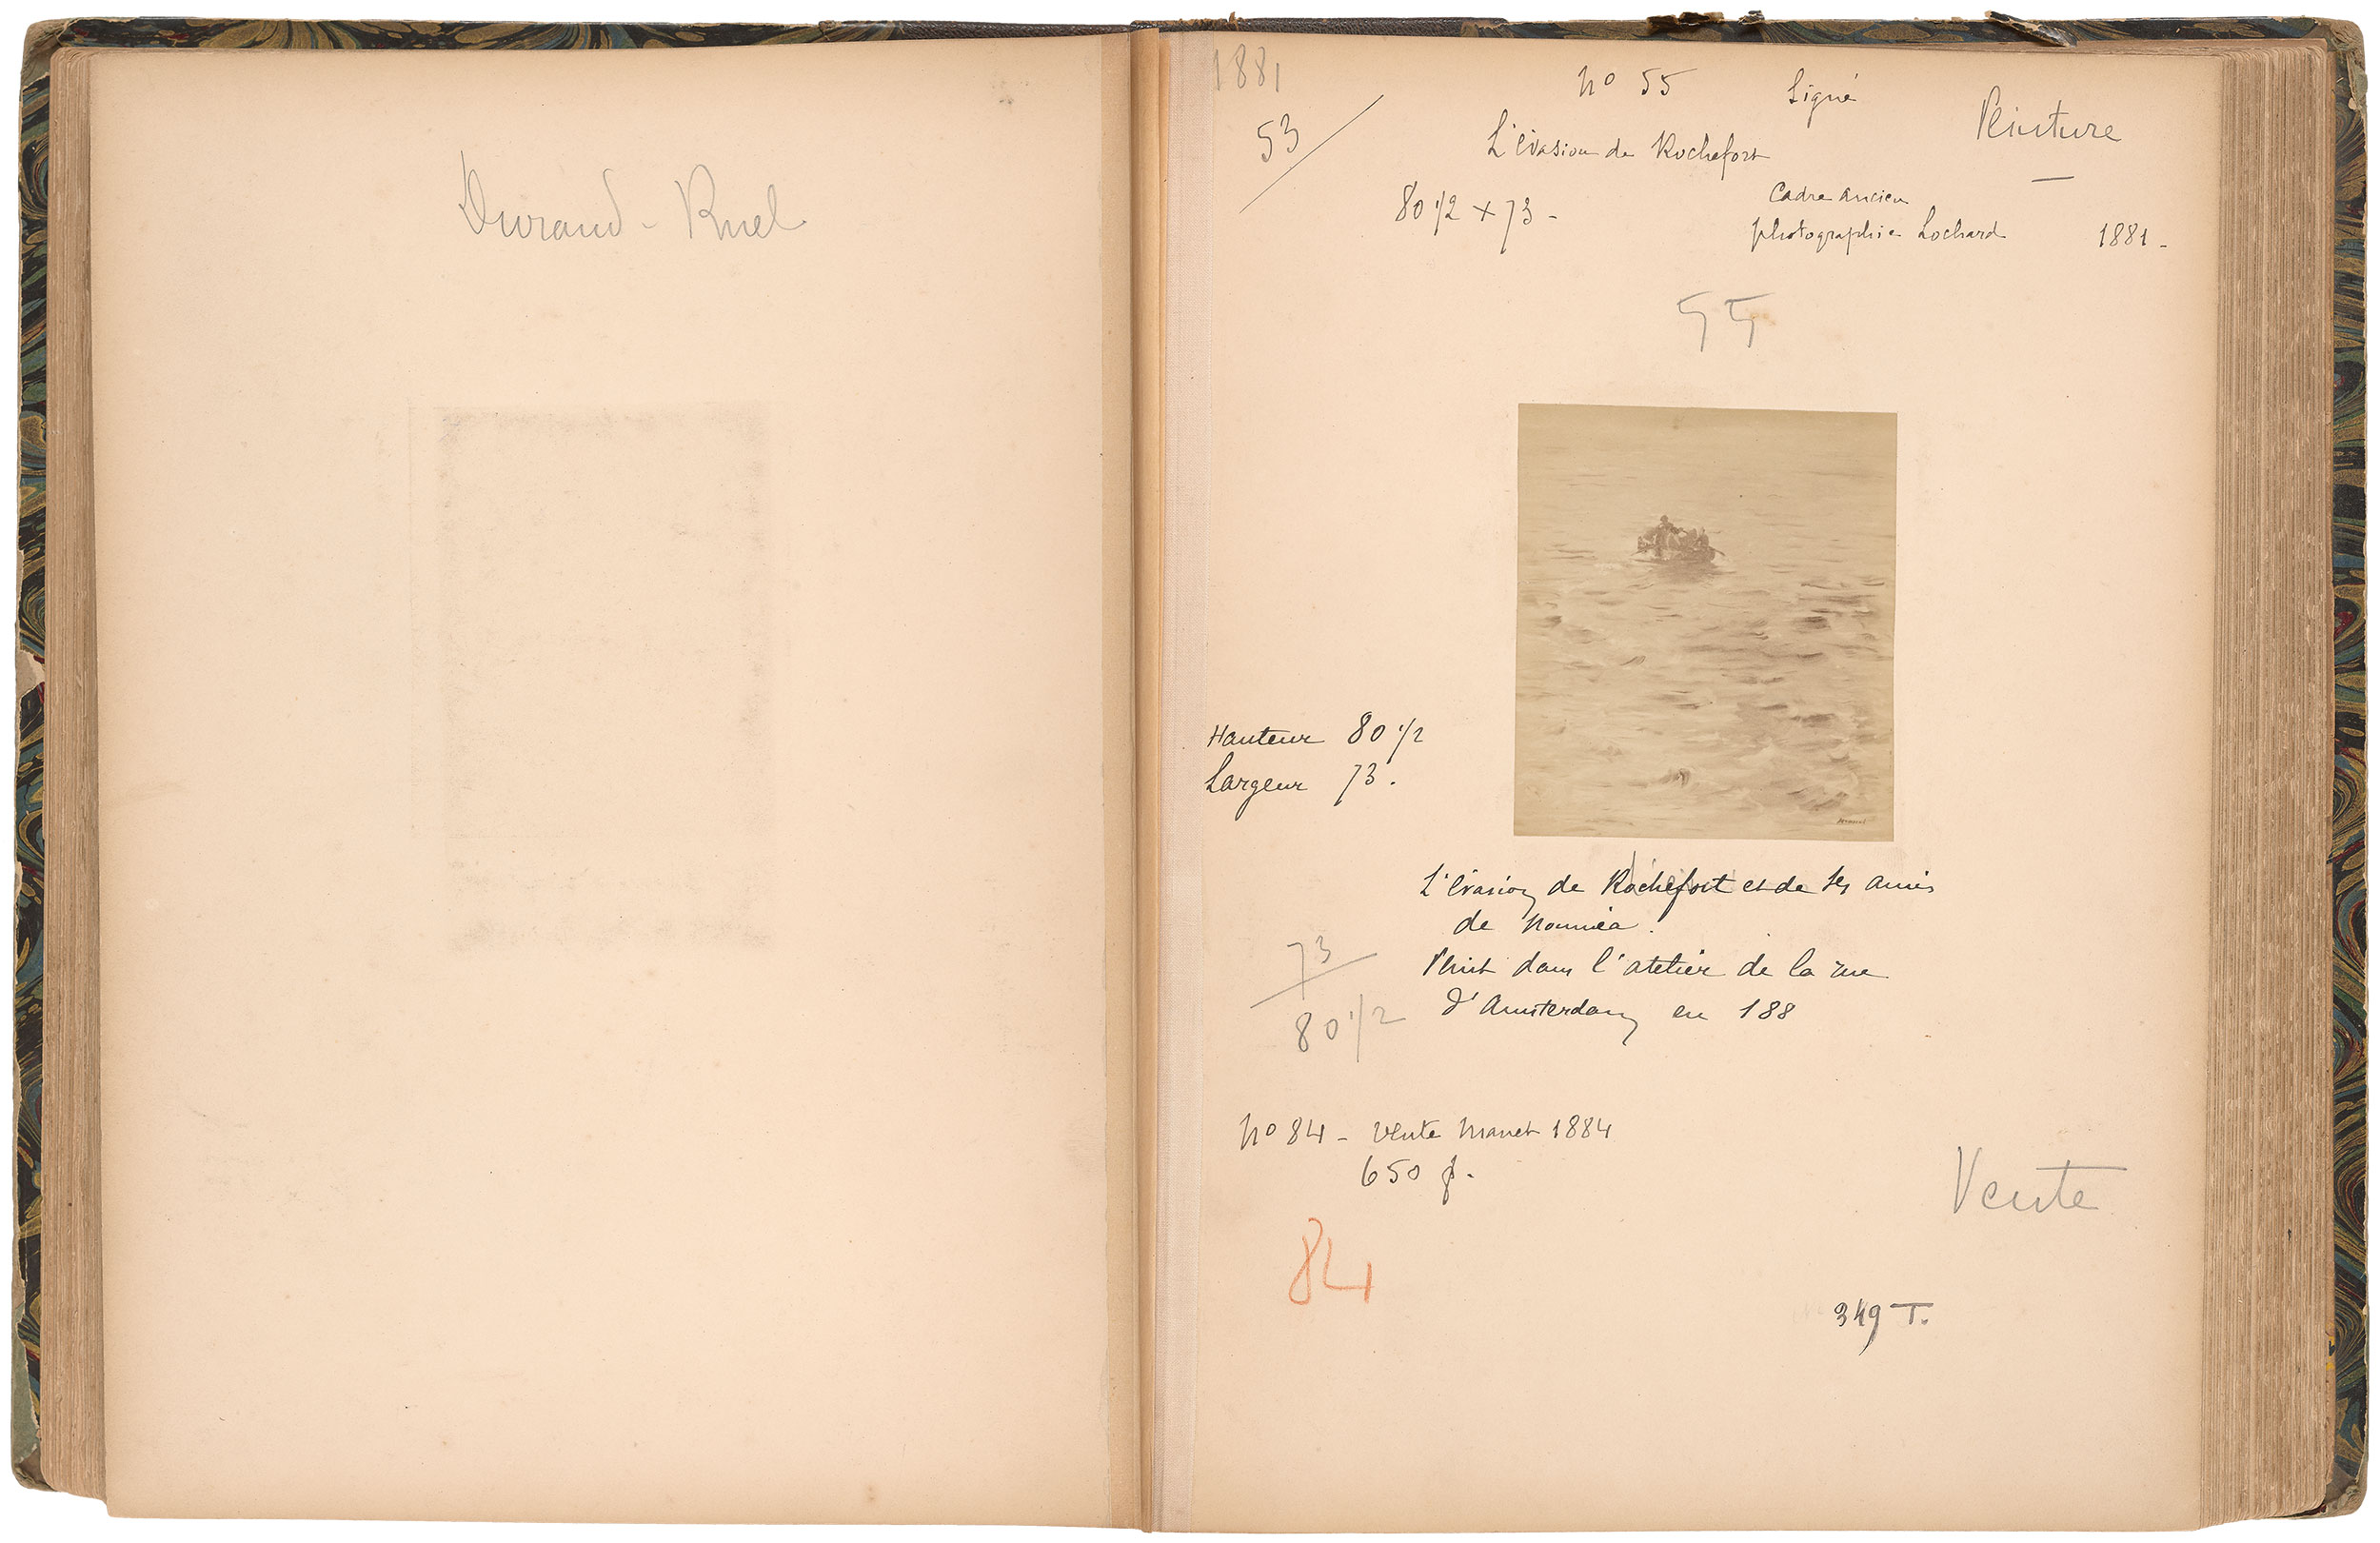 Durand-Ruel
1881
no 55
Signé
Peinture
53
L'évasion de Rochefort
80 1/2 x 73 -
Cadre ancien
photographie Lochard 1881 -
55
Manet
Hauteur 80 1/2
Largeur 73.
L'évasion de Rochefort et de ses amis
de Nouméa.
Peint dans l'atelier de la rue
d'Amsterdam en 188
73
80 1/2
no 84 - vente Manet 1884
650 f.
Vente
84
349 T.